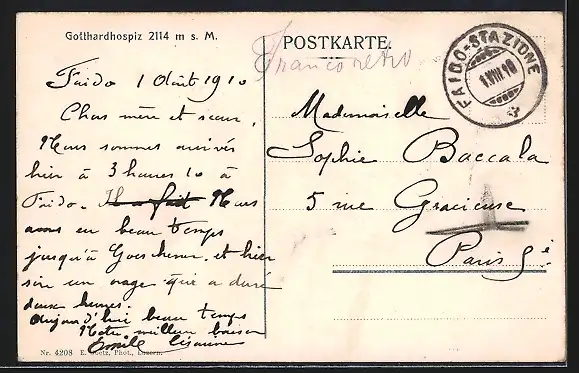 Gotthardhospiz 2114 m s. M.
Faido 1 Août 1910
Chas mère et soeur,
Nous sommes arrivés
hier à 3 heures 10 à
Faido. Il a fait Nous
avons eu beau temps
jusqu'à Goeschenen et hier
soir un orage qui a duré
deux heures.
Aujourd'hui beau temps
Notre meilleur baiser
Emile Césarine
Nr. 4208 E. Goetz, Phot., Luzern.
POSTKARTE.
Franco retro
FAIDO-STAZIONE
1.VIII.10
Mademoiselle
Sophie Baccala
5 rue Gracieuse
Paris 5è